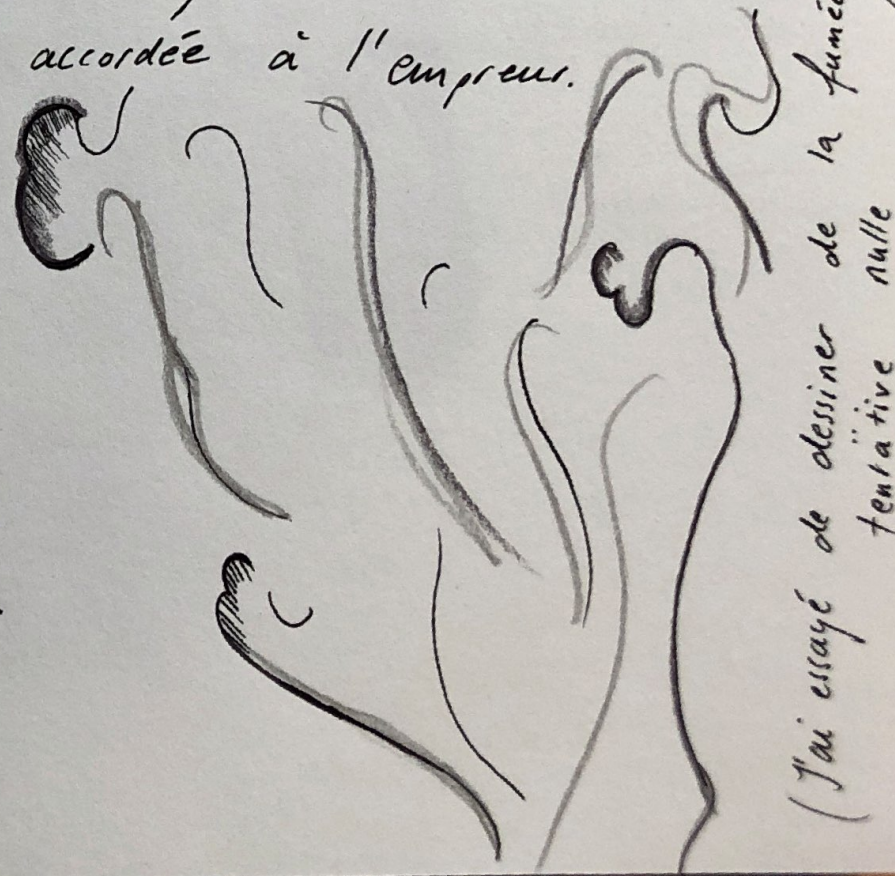 accordée à l'empreur.
(J'ai essayé de dessiner de la fumée
tentative nulle